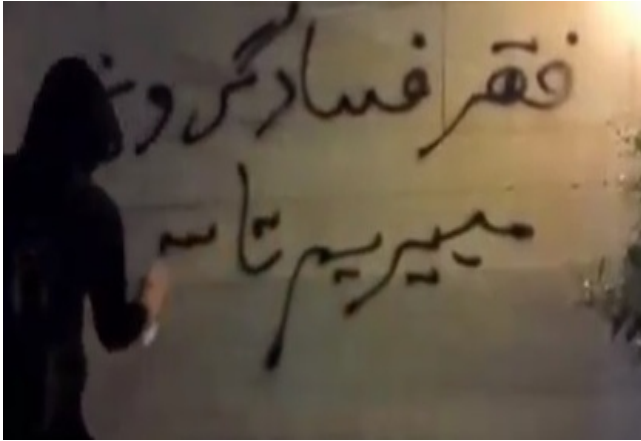 فقر فساد گرونی
مییریم تا